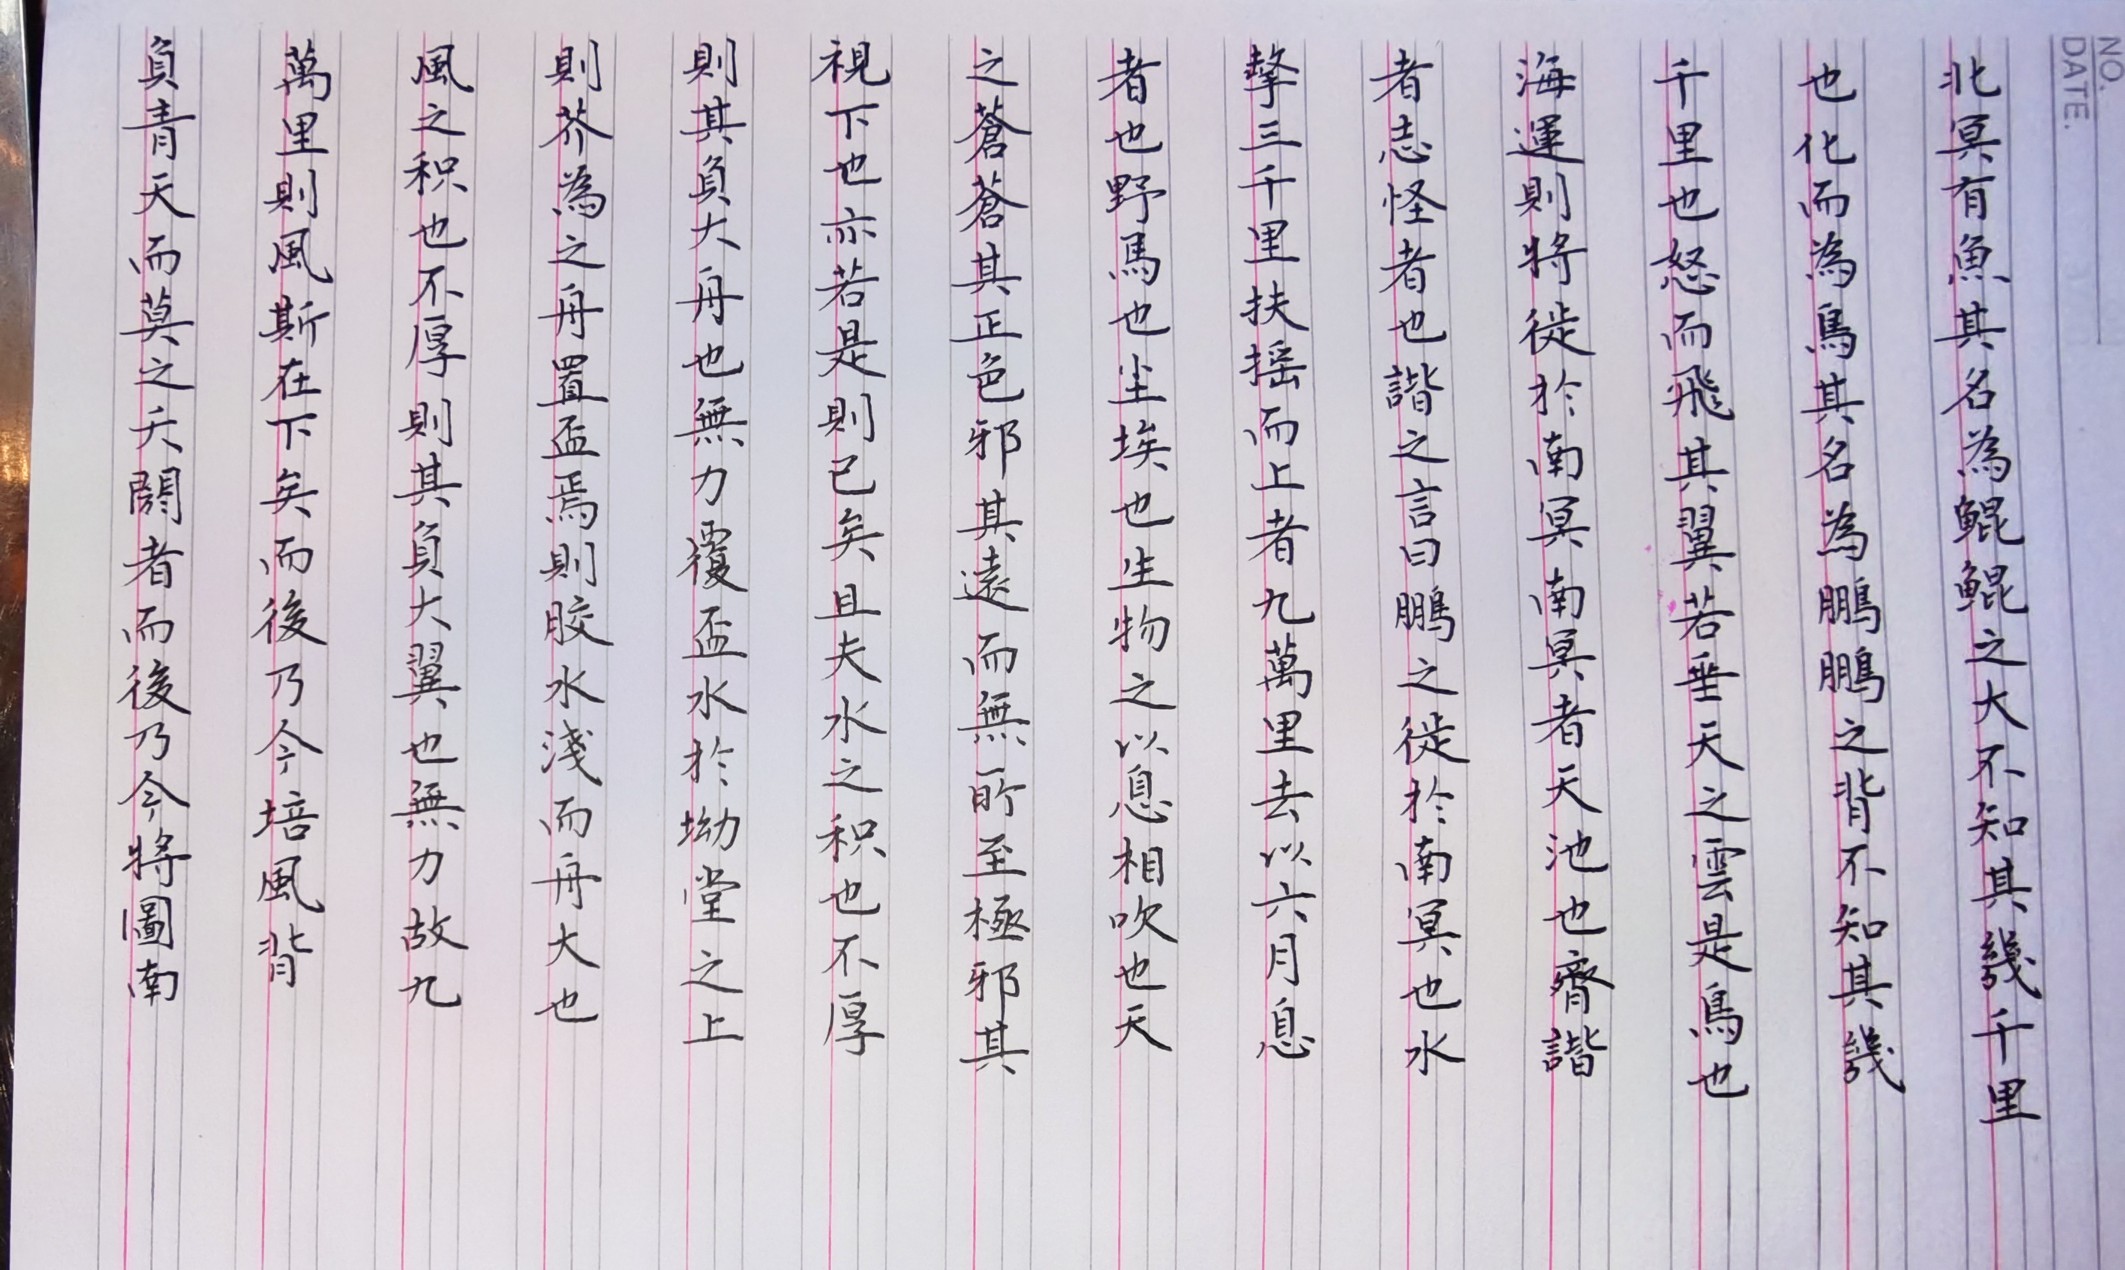 NO.
DATE.
北冥有魚其名為鯤鯤之大不知其幾千里
也化而為鳥其名為鵬鵬之背不知其幾
千里也怒而飛其翼若垂天之雲是鳥也
海運則將徙於南冥南冥者天池也齊諧
者志怪者也諧之言曰鵬之徙於南冥也水
擊三千里扶摇而上者九萬里去以六月息
者也野馬也尘埃也生物之以息相吹也天
之蒼蒼其正色邪其遠而無所至極邪其
視下也亦若是則已矣且夫水之积也不厚
則其負大舟也無力覆盃水於坳堂之上
則芥為之舟置盃焉則胶水淺而舟大也
風之积也不厚則其負大翼也無力故九
萬里則風斯在下矣而後乃今培風背
負青天而莫之夭閼者而後乃今將圖南